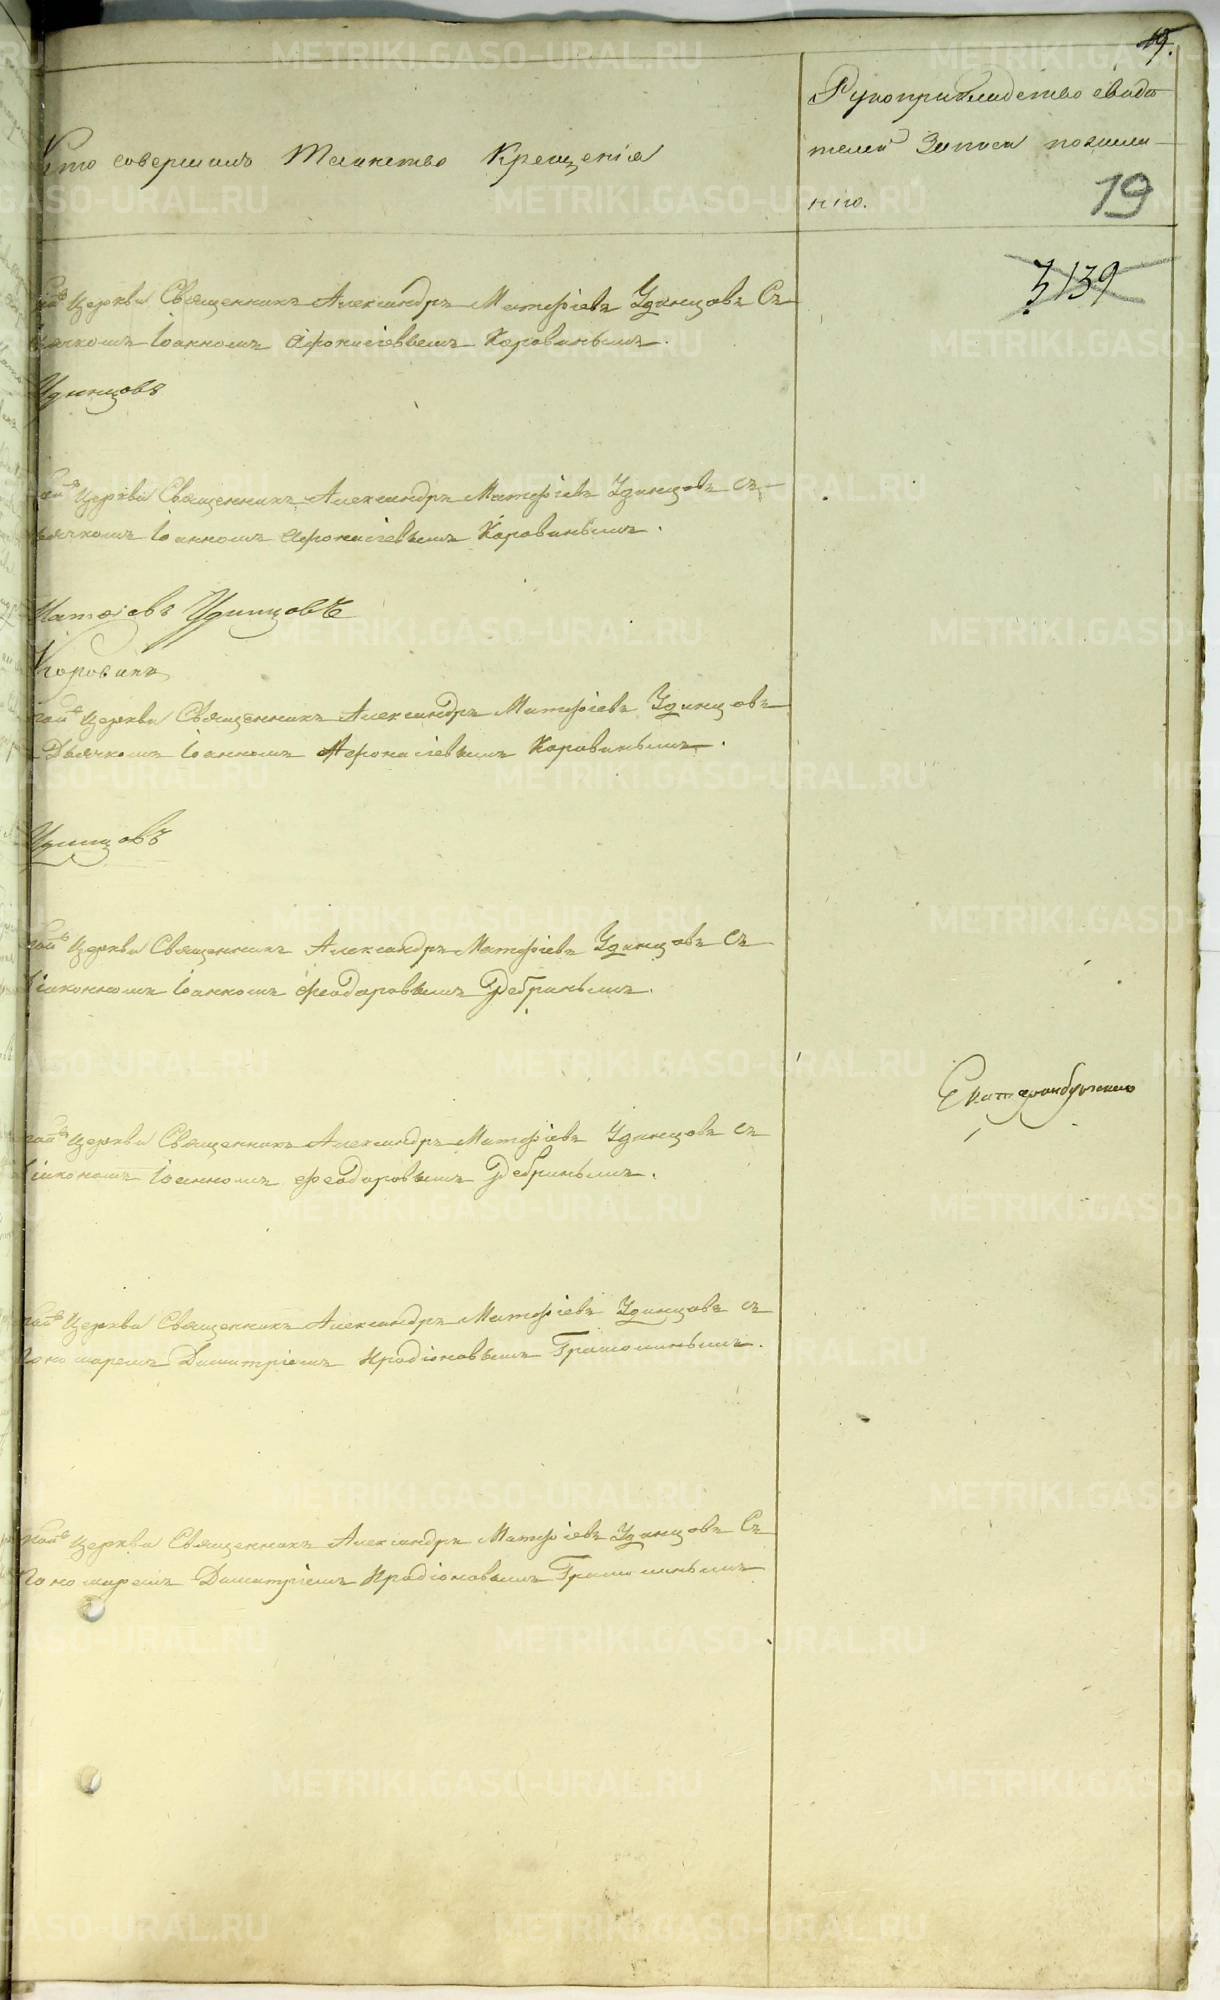 19.
Кто совершалъ Таинство Крещенія
Рукоприкладство свидѣ-
телей Записи по желан-
нію.
19
3139
Церкви Священникъ Александръ Матфіевъ Удинцовъ Съ
Іоанномъ Афонасіевымъ Коровинымъ.
Удинцовъ
Церкви Священникъ Александръ Матфіевъ Удинцовъ съ
Іоанномъ Афонасіевымъ Коровинымъ.
Матѳіевъ Удинцовъ
Коровинъ
Церкви Священникъ Александръ Матфіевъ Удинцовъ
Дьячкомъ Іоанномъ Афонасіевымъ Коровинымъ.
Удинцовъ
Церкви Священникъ Александръ Матфіевъ Удинцовъ Съ
Іоанномъ Феодоровымъ Дебринымъ.
Екатеринбургскаго
Церкви Священникъ Александръ Матфіевъ Удинцовъ съ
Іоанномъ Феодоровымъ Дебринымъ.
Церкви Священникъ Александръ Матфіевъ Удинцовъ съ
Пономаремъ Димитріемъ Иродіоновымъ Грамолинымъ.
Церкви Священникъ Александръ Матфіевъ Удинцовъ Съ
Пономаремъ Димитріемъ Иродіоновымъ Грамолинымъ
METRIKI.GASO-URAL.RU